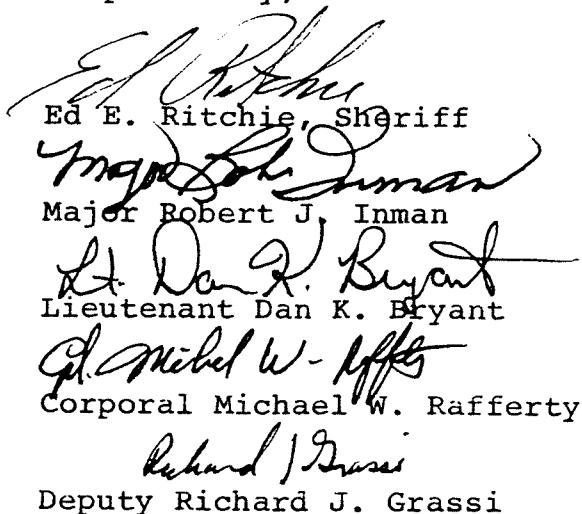 Ed Ritchie
Ed E. Ritchie, Sheriff
Major Bob Inman
Major Robert J. Inman
Lt. Dan K. Bryant
Lieutenant Dan K. Bryant
Cpl. Michael W. Rafferty
Corporal Michael W. Rafferty
Richard J Grassi
Deputy Richard J. Grassi